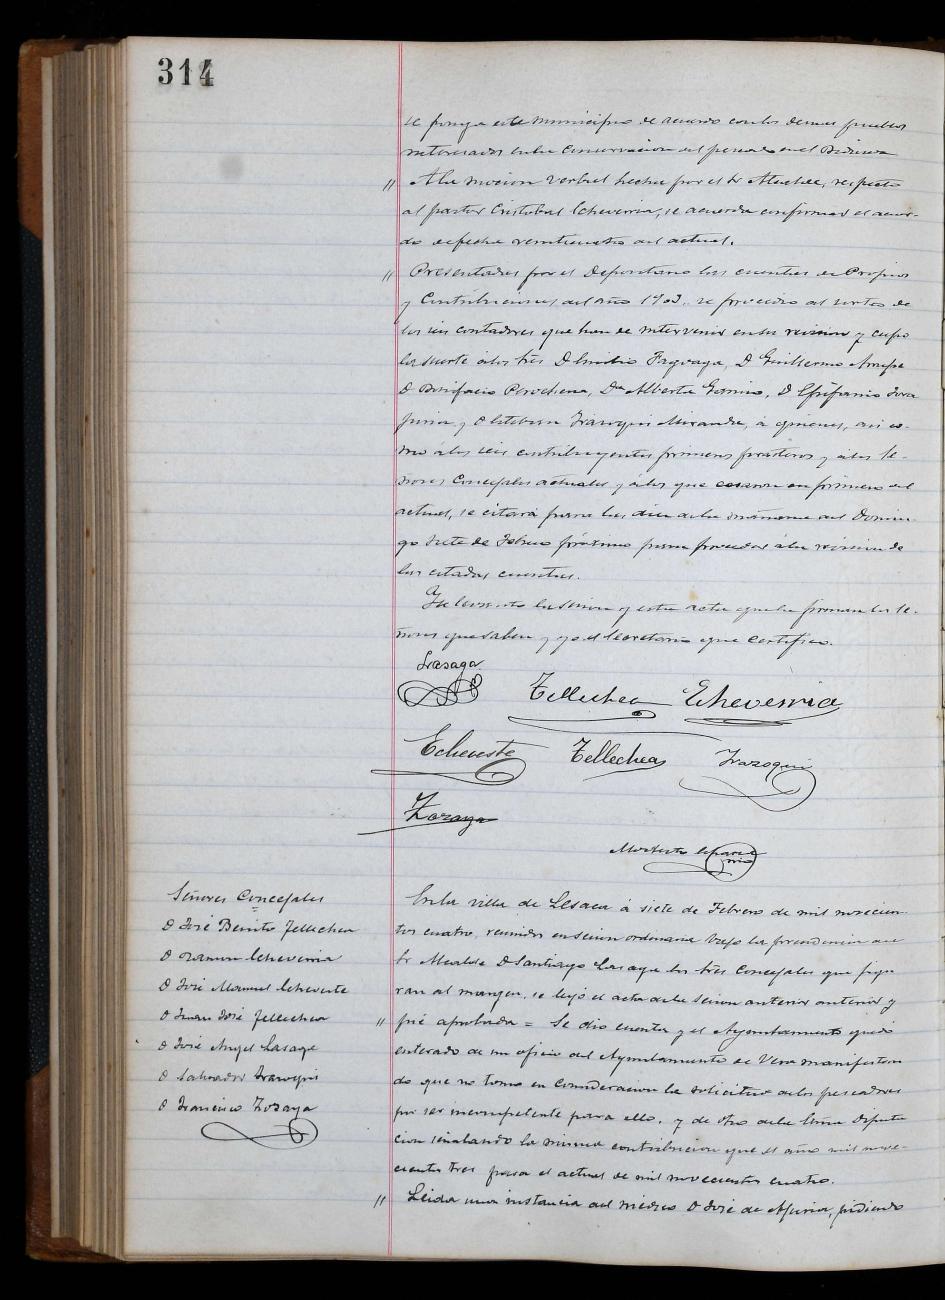 314
se ponga este municipio de acuerdo con los demas pueblos
interesados en la conservacion del pescado en el Bidasoa
" A la mocion verbal hecha por el Sr Alcalde, respecto
al pastor Cristobal Echeverria, se acuerda confirmar el acuer-
do de fecha veinticuatro del actual.
" Presentadas por el Depositario las cuentas de Propios
y Contribuciones del año 1903. se procedio al sorteo de
los seis contadores que han de intervenir en su revision y cupo
la suerte a los Sres D Emilio Fagoaga, D Guillermo
D Bonifacio Perochena, Dn Alberto D Epifanio
y D Esteban Irazoqui Miranda, á quienes, asi co-
mo á los seis contribuyentes primeros forasteros y a los Se-
ñores Concejales actuales y a los que cesaron en primero del
actual, se citará para las diez de la mañana del Domin-
go siete de Febrero próximo para proceder á la revision de
las citadas cuentas.
Se levantó la sesion y esta acta que la firman los Se-
ñores que saben y yo el Secretario que certifico.
Lasaga
Tellechea Echeverria
Echeveste Tellechea Irazoqui
Zozaya
Modesto
Señores Concejales
D José Benito Tellechea
D Ramon Echeverria
D José Manuel Echeveste
D Juan José Tellechea
D José Angel Lasaga
D Salvador Irazoqui
D Francisco Zozaya
En la villa de Lesaca á siete de Febrero de mil novecien-
tos cuatro, reunidos en sesion ordinaria bajo la presidencia del
Sr Alcalde D Santiago Lasaga los Sres Concejales que figu-
ran al margen, se leyó el acta de la sesion anterior anterior y
" fué aprobada = Se dio cuenta y el Ayuntamiento quedó
enterado de un oficio del Ayuntamiento de Vera manifestan
do que no tomo en consideracion la solicitud de los pescadores
por ser incompetente para ello, y de otro de la Exma Diputa
cion señalando la misma contribucion que el año mil nove-
cientos tres para el actual de mil novecientos cuatro.
" Leida una instancia del médico D José de pidiendo